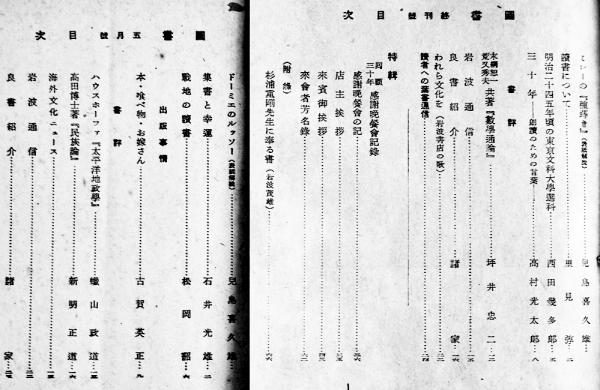 圖書 終刊號 目次
ミレーの『種蒔き』(表紙解説)……兒島喜久雄…一
讀書について……里見弴…二
明治二十四五年頃の東京文科大學選科……西田幾多郎…五
三十年―朗讀のための言葉……高村光太郎…八
書評
末綱恕一 荒又秀夫 共著『數學通論』……坪井忠二…一二
岩波通信……一五
良書紹介……諸家…一六
われら文化を(岩波書店の歌)……二二
讀者への葉書通信……二四
特輯
回顧三十年 感謝晩餐會記錄
感謝晩餐會の記……二六
店主挨拶……三二
來賓御挨拶……
來會者芳名錄……
(附錄)
杉浦重剛先生に奉る書(岩波茂雄)……六六
圖書 五月號 目次
ドーミエのルッソー(表紙解説)……兒島喜久雄…
集書と幸運……石井光雄…二
戰地の讀書……松岡…六
出版事情
本・喰べ物・お嫁さん……古賀英正…九
書評
ハウスホーファ『太平洋地政學』……蠟山政道…一三
高田博士著『民族論』……新明正道…一六
海外文化ニュース……
岩波通信……
良書紹介……諸家…
1